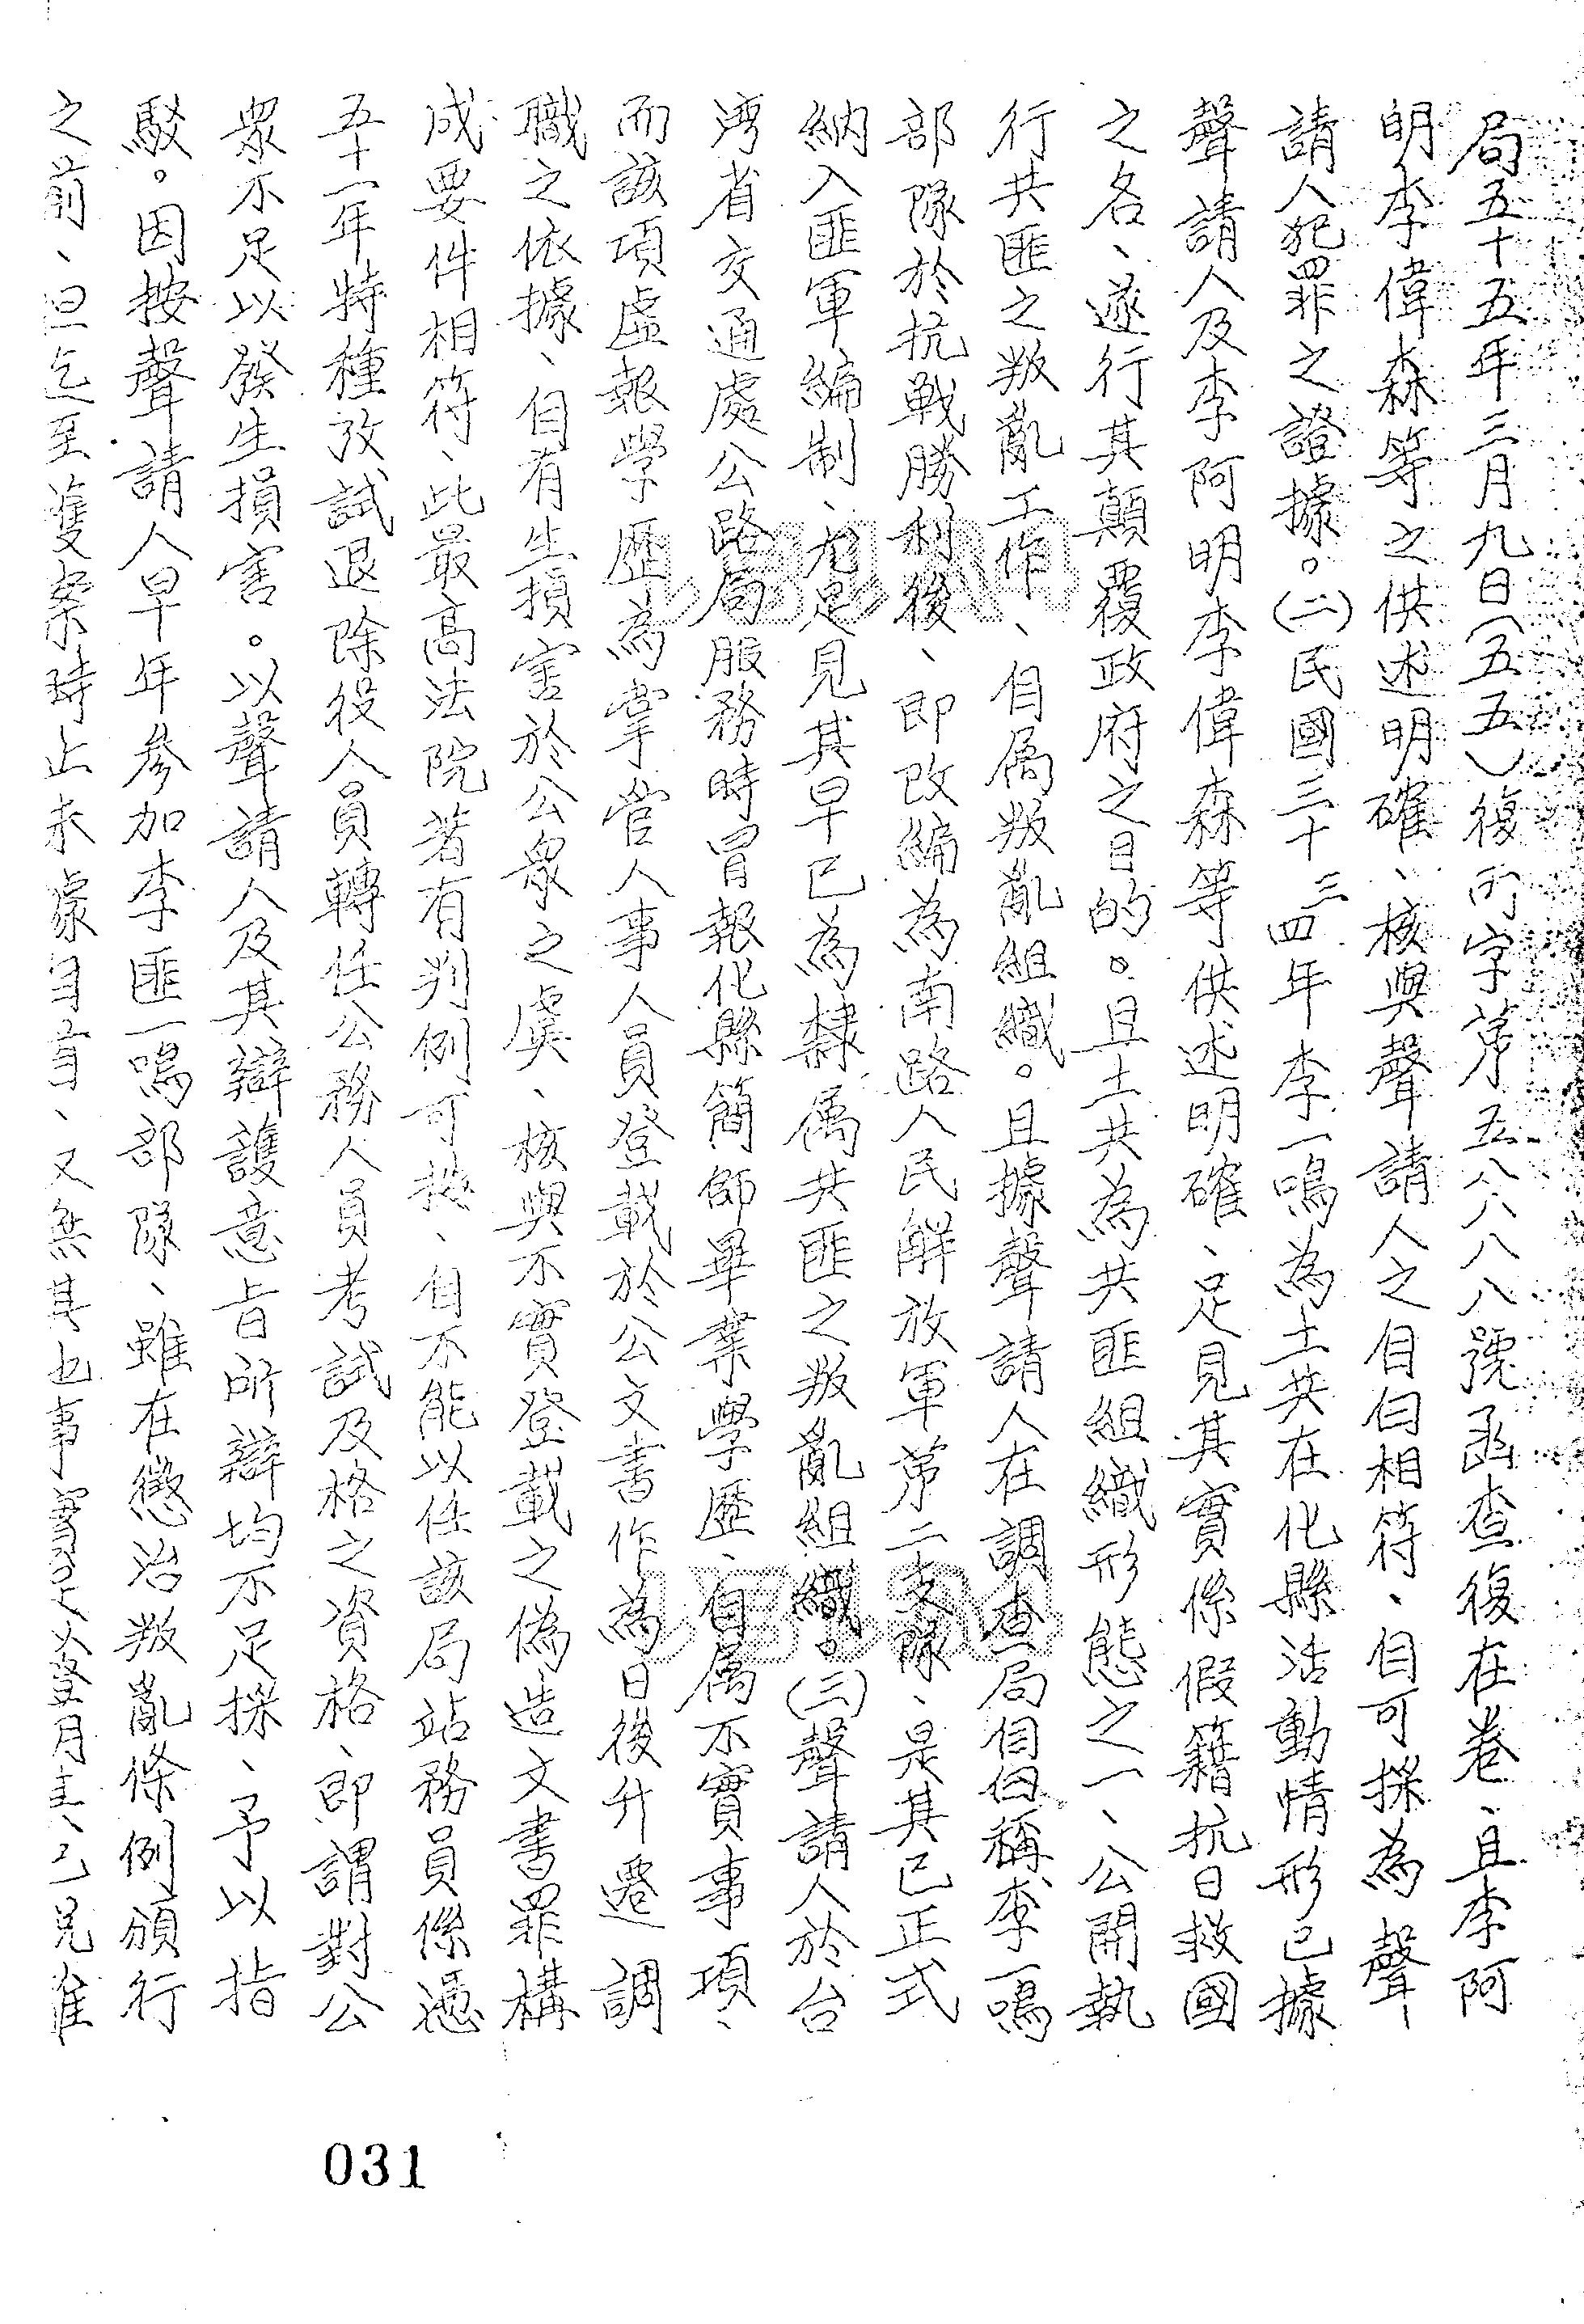 局五十五年三月九日(五五)復刑字第五八六八八號函查復在卷、且李阿
明李偉森等之供述明確、核與聲請人之自白相符、自可採為聲
請人犯罪之證據。(二)民國三十三四年李一鳴為土共在化縣活動情形已據
聲請人及李阿明李偉森等供述明確、足見其實係假籍抗日救國
之名、遂行其顛覆政府之目的。且土共為共匪組織形態之一、公開執
行共匪之叛亂工作、自属叛亂組織。且據聲請人在調查局自白稱李一鳴
部隊於抗戰勝利後、即改編為南路人民解放軍第二支隊、是其已正式
納入匪軍編制、尤足見其早已為隸属共匪之叛亂組織。(三)聲請人於台
湾省交通處公路局服務時冒報化縣簡師畢業學歷、自属不實事項、
而該項虛報學歷為掌管人事人員登載於公文書作為日後升遷調
職之依據、自有生損害於公眾之虞、核與不實登載之偽造文書罪構
成要件相符、此最高法院著有判例可按、自不能以任該局站務員係憑
五十一年特種攷試退除役人員轉任公務人員考試及格之資格、即謂對公
眾不足以發生損害。以聲請人及其辯護意旨所辯均不足採、予以指
駁。因按聲請人早年參加李匪一鳴部隊、雖在懲治叛亂條例頒行
之前、但迄至獲案時止未據自首、又無其他事實足以證明其已兄准
031